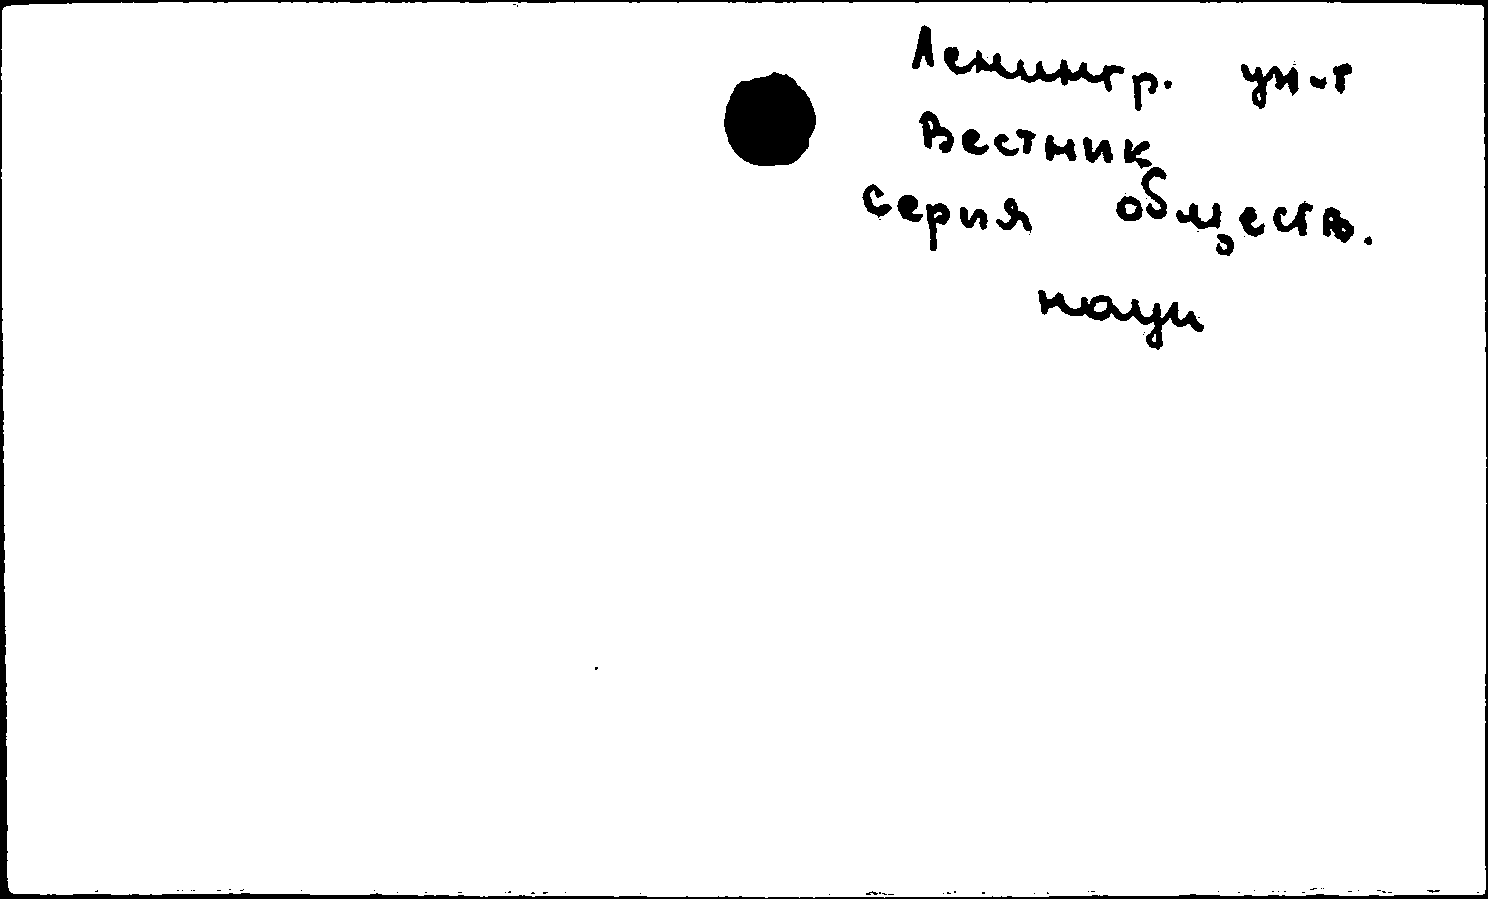 Ленингр. ун-т
Вестник
серия обществ.
науки